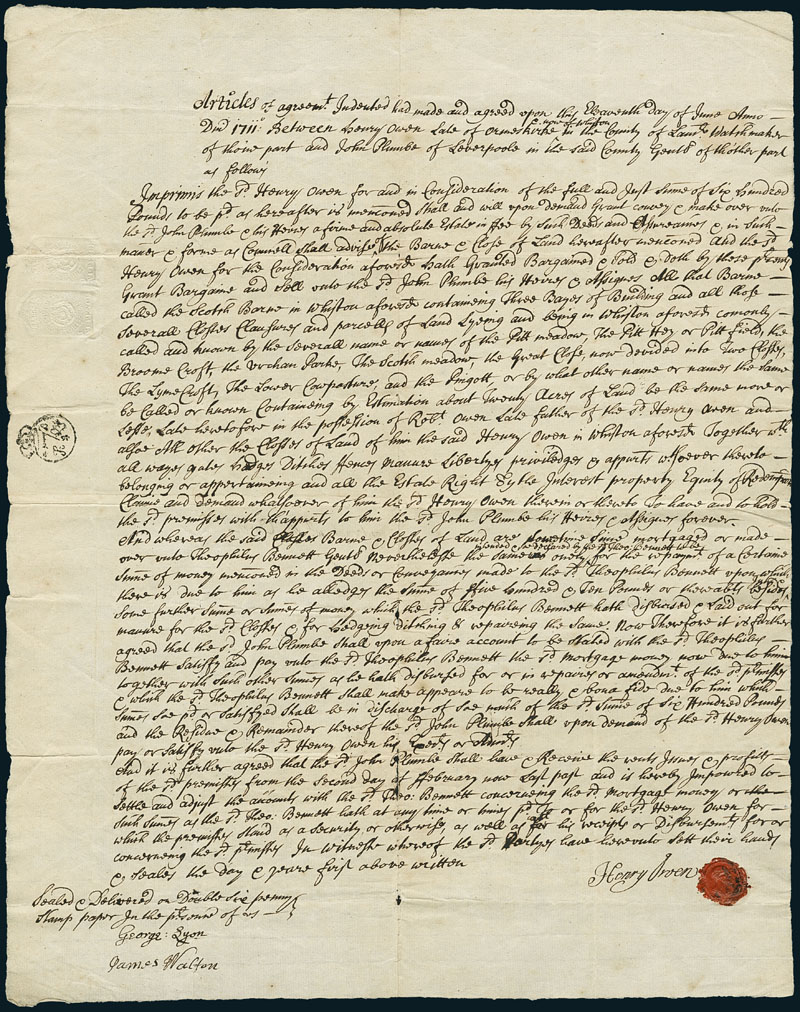 Articles of agreemt. Indented had made and agreed upon this Eleaventh day of June Anno
Dni 1711 Between Henry Owen Late of Ormeskirke & now of Whiston in the County of Lancr. Watchmaker
of thone part and John Plumbe of Leverpoole in the said County Gentl. of thother part
as follows
Imprimis the sd. Henry Owen for and in Consideration of the full and Just Sume of Six Hundred
Pounds to be pd. as hereafter is menconed Shall and will upon demaud Grant convey & make over unto
the sd. John Plumbe & his Heires a firme and absolute Estate in ffee by Such Deeds and Assureances & in Such
maner & forme as Councell Shall advise, the Barne & Close of Land hereafter menconed And the sd.
Henry Owen for the Consideration aforesd. Hath Granted Bargained & Sold & Doth by these prsents
Grant Bargaine and Sell unto the sd. John Plumbe his Heires & Assignes All that Barne
called the Scotch Barne in Whiston aforesd. containeing Three Bayes of Building and all those
Severall Closses Clausures and parcells of Land Lyeing and being in Whiston aforesd. comonly
called and knowne by the Severall name or names of the Pitt meadow, The Pitt Hey or Pittfield, the
Broome Croft, the Urchan Parke, The Scotch meadow, the Great Close, now devided into Two Closses,
The LymeCroft, The Lower Cowpasture, and the Pingott or by what other name or names the same
be Called or known Containeing by Estimation about Twenty Acres of Land be the same more or
Lesse, Late heretofore in the possession of Robt. Owen Late father of the sd. Henry Owen and
alsoe All other the Closses of Land of him the said Henry Owen in Whiston aforesd. Together wth.
all wayes gates Hedges Ditches ffences Manure Libertyes priviledges & appurts wtsoever thereto
belonging or appertaineing and all the Estate Right Title Interest property Equity of Redempcon
Claime and Demand whatsoever of him the sd. Henry Owen therein or thereto To have and to hold
the sd. premisses with thappurts to him the sd. John Plumbe his Heires & Assignes forever.
And whereas the said Barne & Closses of Land are Some time Since mortgaged or made
over unto Theophilus Bennett Gentl. Neverthelesse the same Theo: Bennett to be onely for the repaymt. of a Certaine
Sume of money menconed in the Deeds or Conveyances made to the sd. Theophilus Bennett upon which
there is due to him as he alledges the Sume of ffive Hundred & Ten Pounds or thereabts besides
Some further Sume or Sumes of money which the sd. Theophilus Bennett hath Disbursed & Laid out for
manure for the sd. Closses & for Hedgeing Ditching & repaireing the Same. Now Therefore it is further
agreed that the sd. John Plumbe Shall upon a faire account to be Stated with the sd. Theophilus
Bennett Satisfy and pay unto the sd. Theophilus Bennett the sd. mortgage money now due to him
together with Such other Sumes as he hath disbursed for or in repaires or amendmt. of the sd. prmisses
& which the sd. Theophilus Bennett Shall make appeare to be really & bona fide due to him which
Sumes soe pd. or Satisfyed Shall be in discharge of soe much of the sd. Sume of Six Hundred Pounds
and the Residue & Remainder thereof the sd. John Plumbe Shall upon demand of the sd. Henry Owen
pay or Satisfy unto the sd. Henry Owen his Exers or Admrs
And it is further agreed that the sd. John Plumbe Shall have & Receive the rents Issues & profitts
of the sd. premisses from the Second day of ffebruary now Last past and is hereby Impowred to
Settle and adjust the accounts with the sd. Theo: Bennett concerning the sd. Mortgage money or other
Such Sumes as the sd. Theo: Bennett hath at any time or times pd. to or for the sd. Henry Owen for
which the premisses Staid as a Security or otherwise, as well as for all his receipts or Disbursemts for or
concerneing the sd. prmisses In witness whereof the sd. Partyes have hereunto Sett their hands
& Seales the day & yeare first above written
Henry Owen
Sealed & Delivered on Double Six penny
Stamp paper In the prsence of us
George: Lyon
James Walton